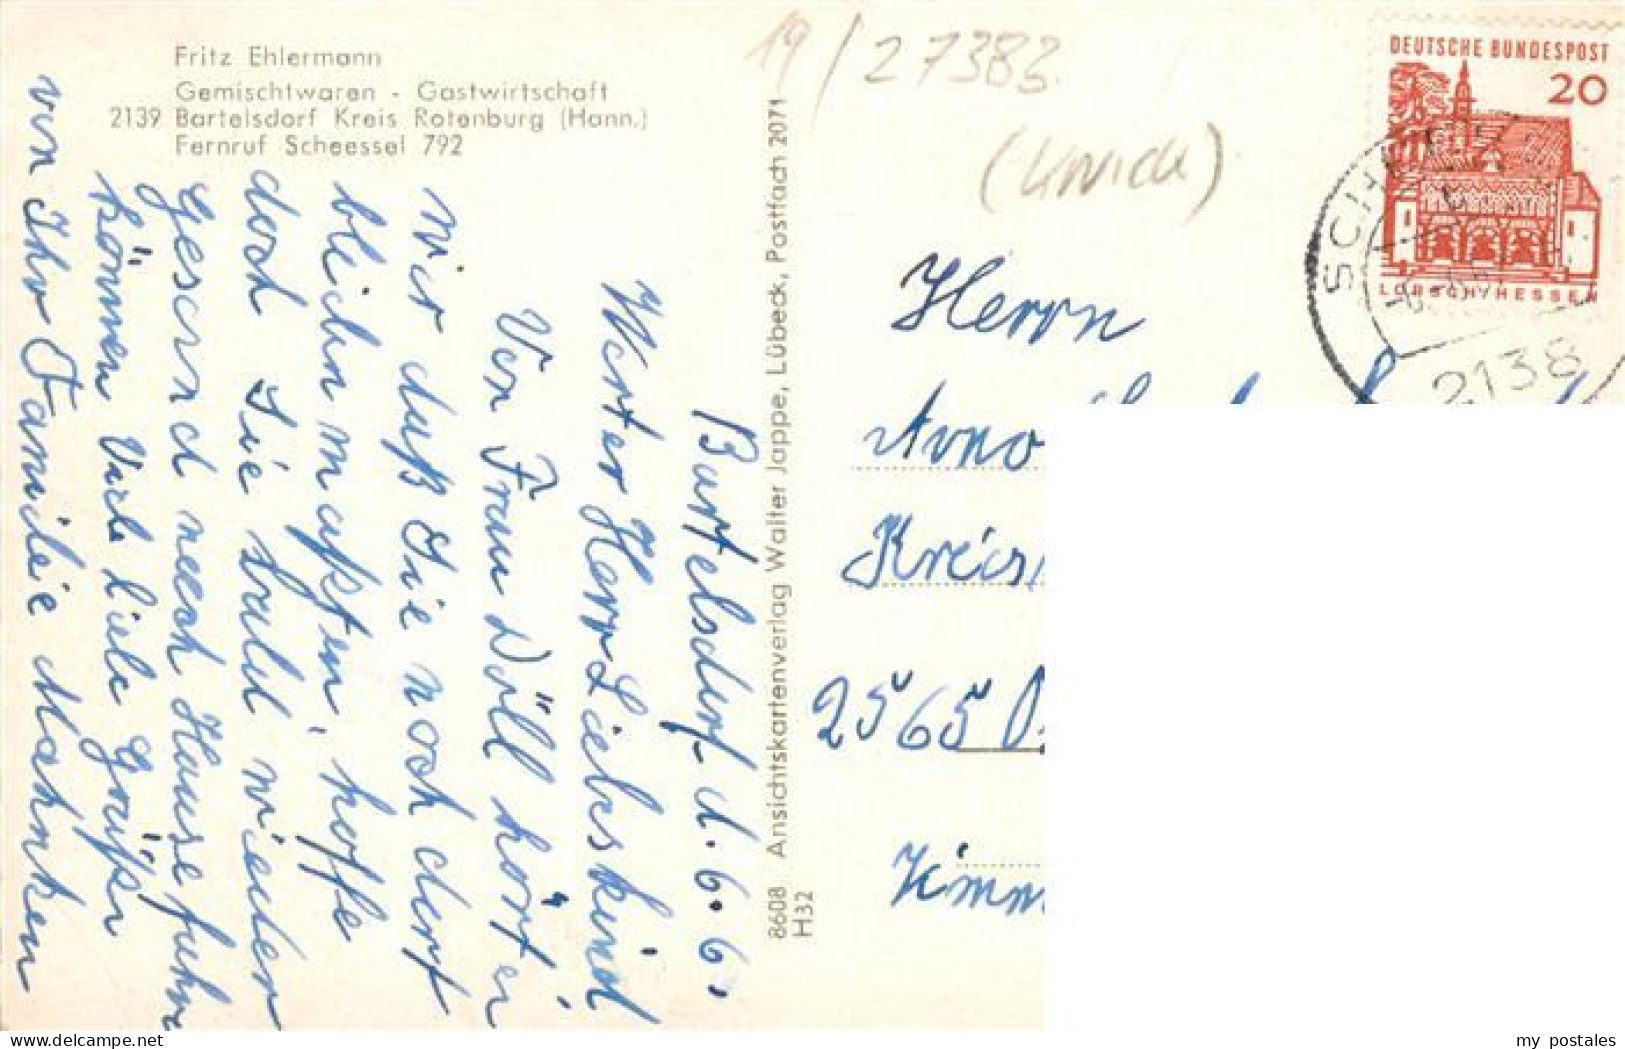 Fritz Ehlermann
Gemischtwaren - Gastwirtschaft
2139 Bartelsdorf Kreis Rotenburg (Hann.)
Fernruf Scheessel 792
Bartelsdorf d. 6. 6.
Werter Herr Liebeskind
Von Frau Döll hörten
wir daß Sie noch dort
bleiben mußten, hoffe
doch Sie bald wieder
gesund nach Hause fahren
können Viele liebe Grüße
von Ihr Familie Mahnken
8608 Ansichtskartenverlag Walter Jappe, Lübeck, Postfach 2071
H32
19/27383
Herrn
Arno
Kreis
2565
DEUTSCHE BUNDESPOST
20
LORSCH/HESSEN
SCHEE
2138
my postales